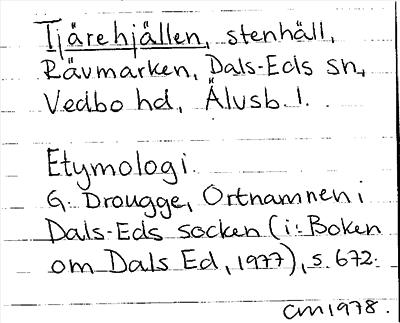 Tjärehjällen, stenhäll,
Rävmarken, Dals-Eds sn,
Vedbo hd, Älvsb. l.
Etymologi.
G. Drougge, Ortnamnen i
Dals-Eds socken (i: Boken
om Dals Ed, 1977), s. 672.
CM 1978.